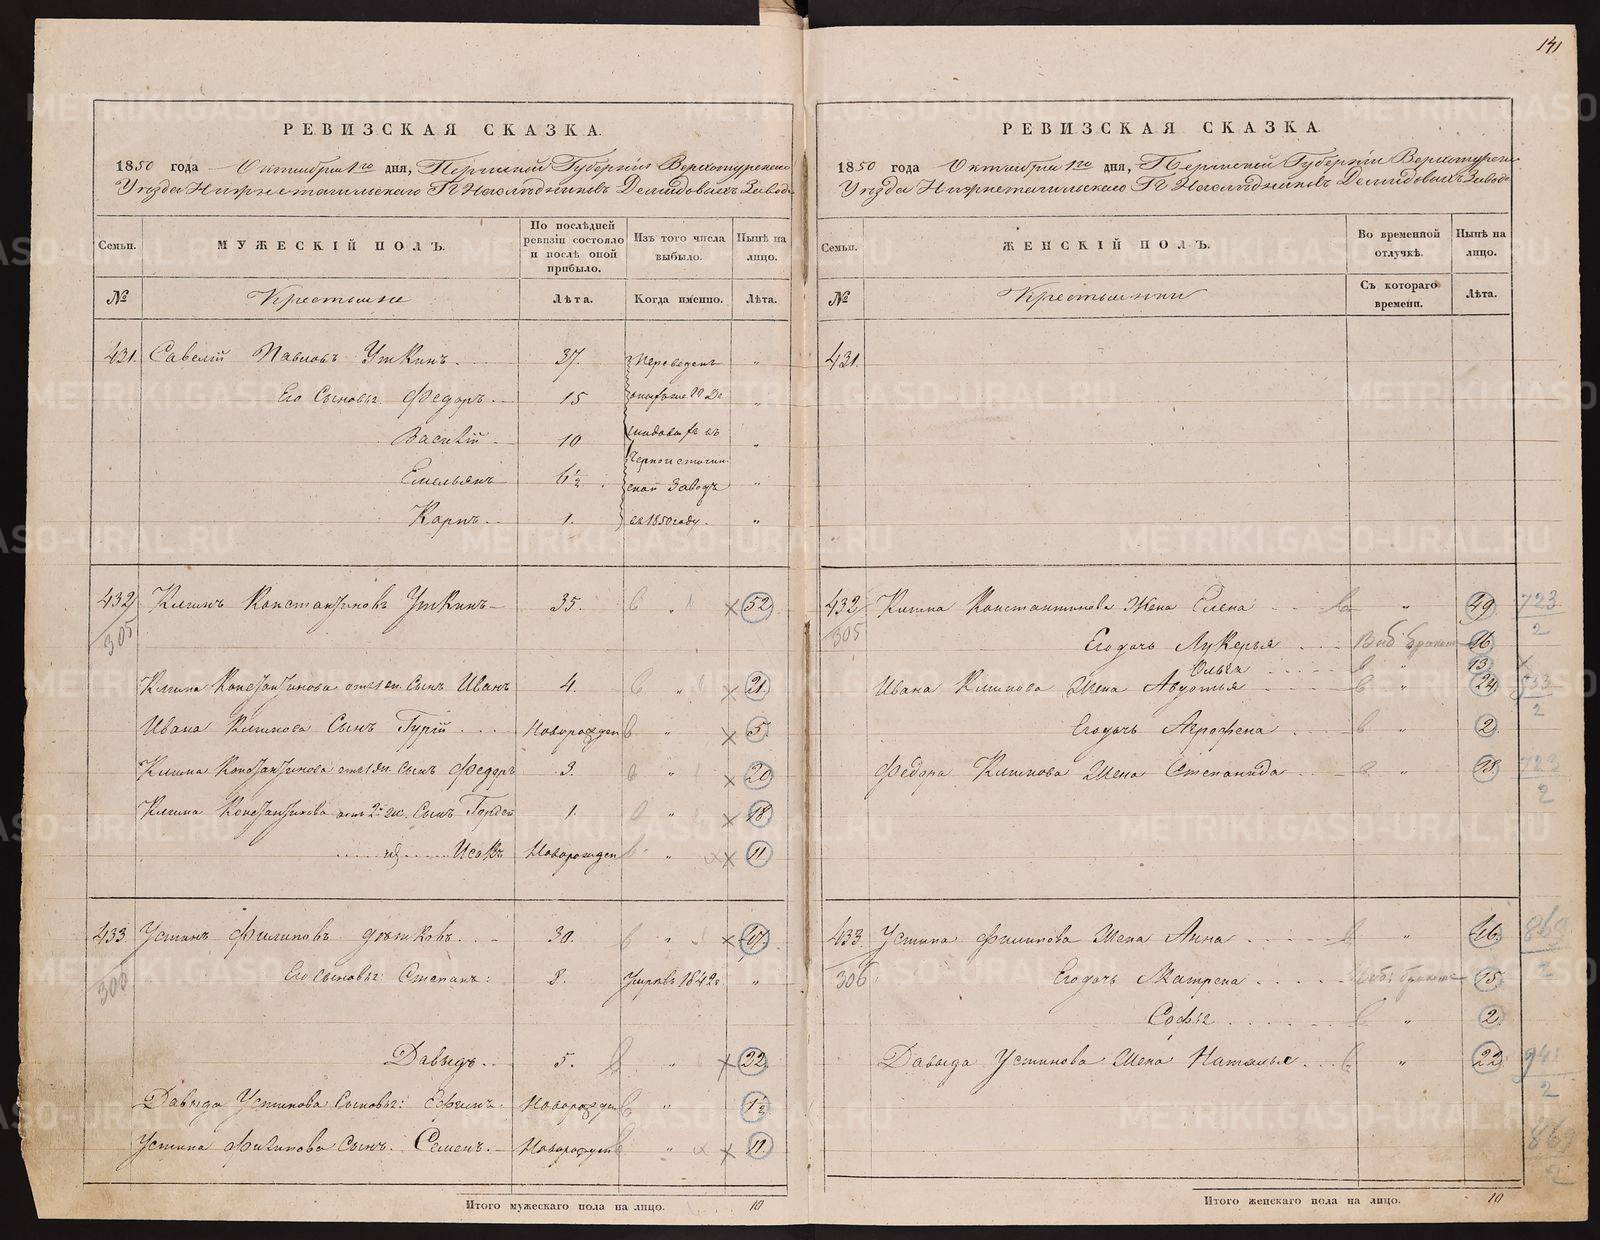 141
РЕВИЗСКАЯ СКАЗКА.
1850 года Октября 1го дня, Пермской Губернiи Верхотурскаго
Уѣзда Нижнетагильскаго ГГ. Наслѣдниковъ Демидовыхъ Завода
Семьи.
МУЖЕСКIЙ ПОЛЪ.
По послѣдней ревизiи состояло и послѣ оной прибыло.
Изъ того числа выбыло.
Нынѣ на лицо.
№ Крестьяне Лѣта. Когда именно. Лѣта.
431. Савелiй Павловъ Уткинъ 37. Переведенъ "
Его Сыновья: Федоръ 15 "
Василiй 10 "
Емельянъ 6½ ской Заводъ "
Карпъ 1. въ 1850 году. "
432 Климъ Константиновъ Уткинъ 35. " 52
305
Клима Константинова Сынъ Иванъ 4. " 21
Ивана Климова Сынъ Гурiй Новорожден " 5
Клима Константинова Сынъ Федоръ 3. " 20
Клима Константинова отъ 2й ж. Сынъ Гордей 1. 18
Исакъ Новорожден " 11
433. Устинъ Филиповъ 30. " 47
306
Его сыновья: Степанъ: 8. Умръ въ 1842 "
Давыдъ 5. " 22
Давыда Устинова Сыновья: Ефимъ Новорожден " 1½
Устина Филипова Сынъ Семенъ. Новорожден " 11
Итого мужескаго пола на лицо. 10
РЕВИЗСКАЯ СКАЗКА.
1850 года Октября 1го дня, Пермской Губернiи Верхотурскаго
Уѣзда Нижнетагильскаго ГГ. Наслѣдниковъ Демидовыхъ Завода
Семьи.
ЖЕНСКIЙ ПОЛЪ.
Во временной отлучкѣ.
Нынѣ на лицо.
№ Крестьянки Съ котораго времени. Лѣта.
431.
432 Клима Константинова Жена Елена " 49 723/2
305
Его дочь Лукерья 16
Ольга " 13
Ивана Климова Жена Авдотья " 24
Его дочь Агрофена " 2
Федора Климова Жена Степанида " 18 723/2
433. Устина Филипова Жена Анна " 46
306
Его дочь Матрена 15
Софья " 2
Давыда Устинова Жена Наталья " 22 941/2
Итого женскаго пола на лицо. 10
METRIKI.GASO-URAL.RU